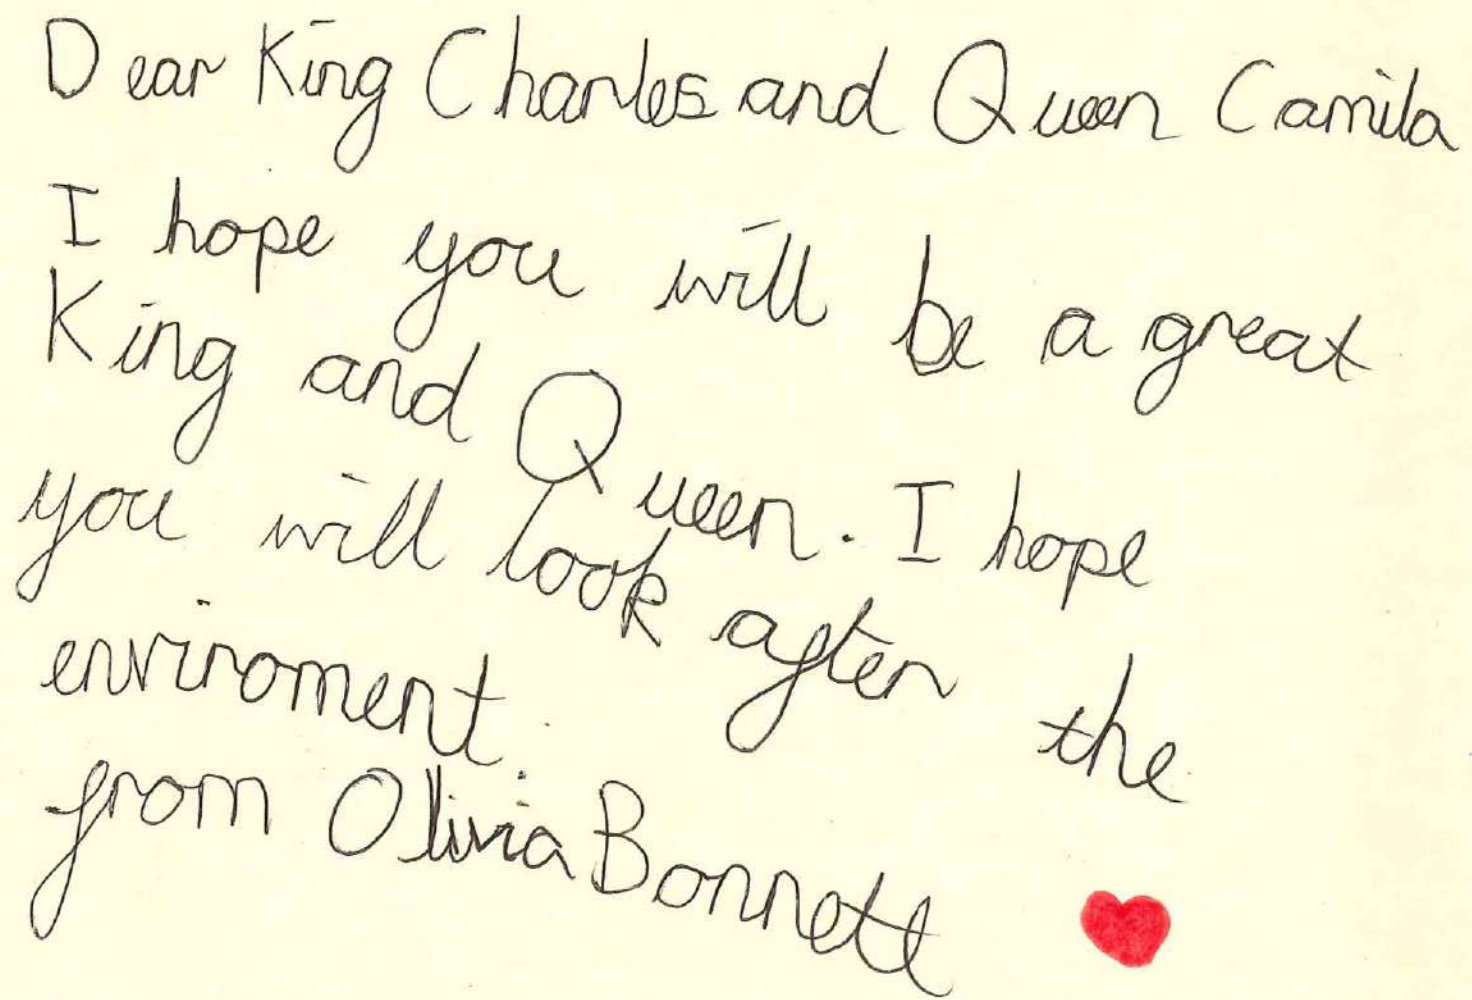 Dear King Charles and Queen Camila
I hope you will be a great
King and Queen. I hope
you will look after the
enviroment.
from Olivia Bonnett